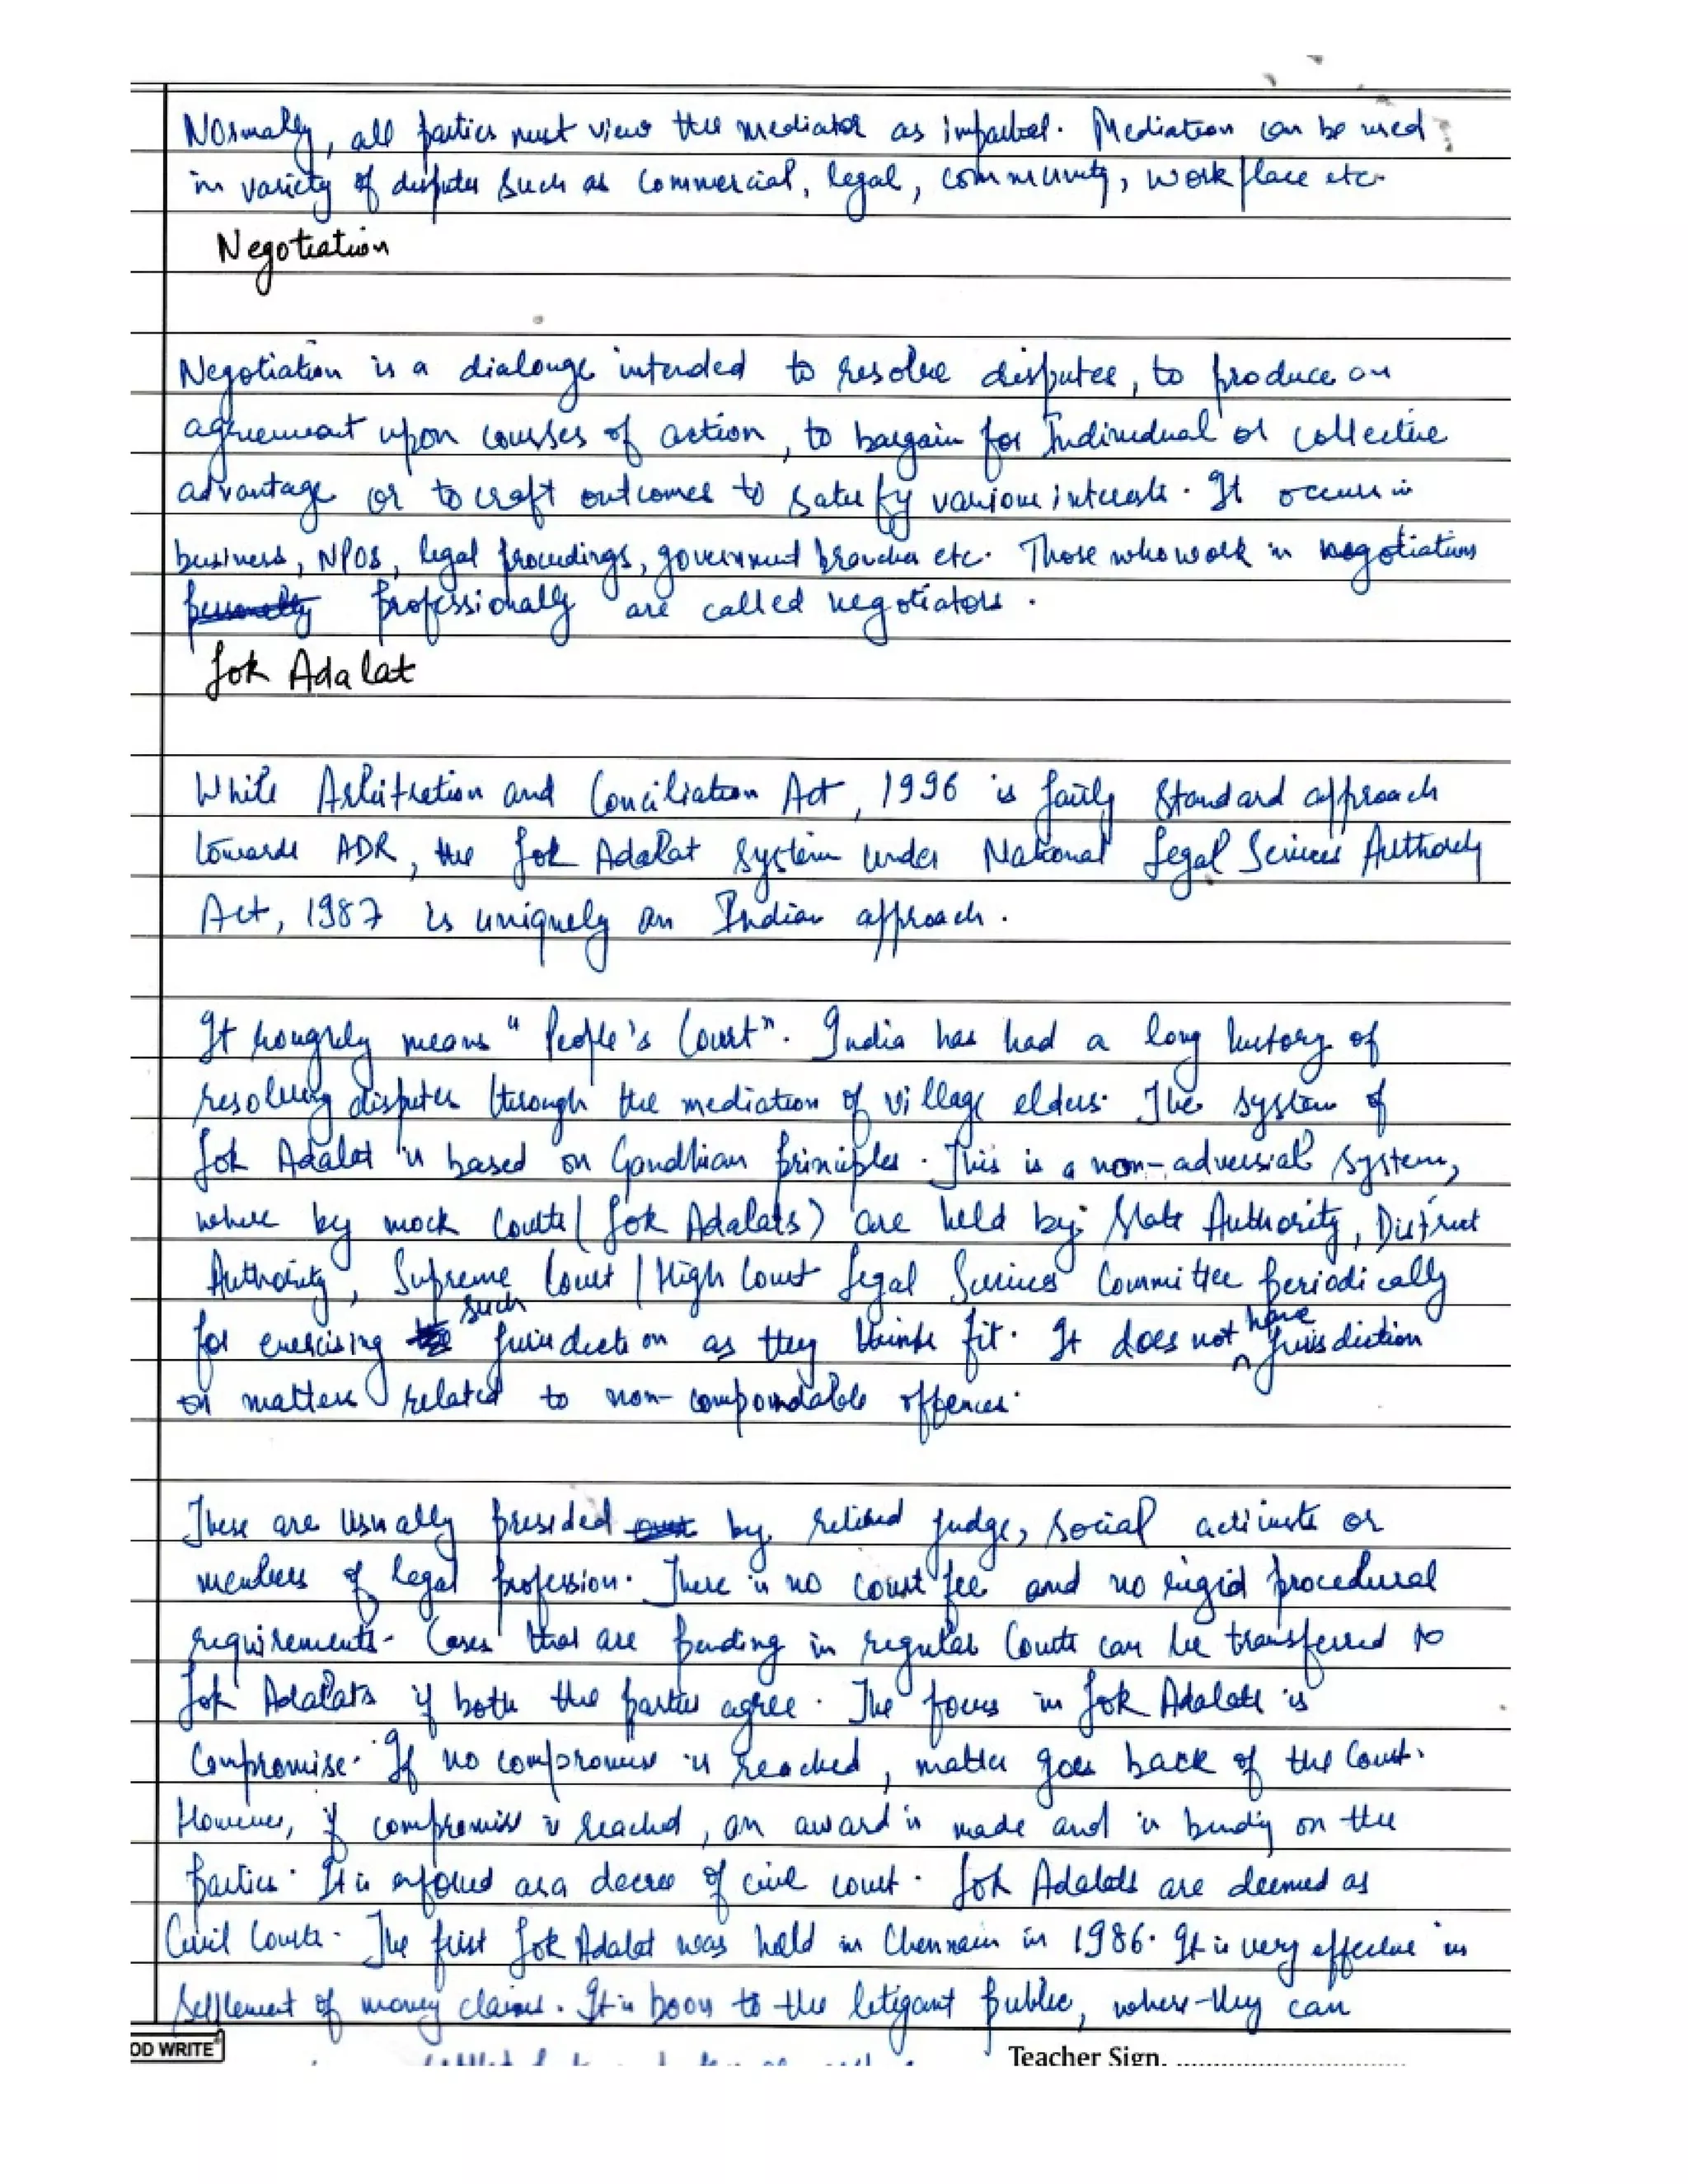 Normally, all parties must view the mediator as impartial. Mediation can be used
in variety of disputes such as commercial, legal, community, workplace etc.
Negotiation
Negotiation is a dialouge intended to resolve disputes, to produce an
agreement upon courses of action, to bargain for Individual or collective
advantage or to craft outcomes to satisfy various interests. It occurs in
business, NPOs, legal proceedings, government branches etc. Those who work in negotiations
personally professionally are called negotiators.
Lok Adalat
While Arbitration and Conciliation Act, 1996 is fairly standard approach
towards ADR, the Lok Adalat system under National Legal Services Authority
Act, 1987 is uniquely an Indian approach.
It roughly means "People's Court". India has had a long history of
resolving disputes through the mediation of village elders. The system of
Lok Adalat is based on Gandhian principles. This is a non-adversial system,
where by mock courts (Lok Adalats) are held by State Authority, District
Authority, Supreme Court / High Court Legal Services Committee periodically
for exercising such jurisdiction as they thinks fit. It does not have jurisdiction
on matters related to non-compoundable offences.
These are usually presided by retired judge, social activists or
members of legal profession. There is no court fee and no rigid procedural
requirements. Cases that are pending in regular Courts can be transferred to
Lok Adalats if both the parties agree. The focus in Lok Adalats is
Compromise. If no compromise is reached, matter goes back of the Court.
However, if compromise is reached, an award is made and is binding on the
parties. It is enforced as a decree of civil court. Lok Adalats are deemed as
Civil Courts. The first Lok Adalat was held in Chennain in 1986. It is very effective in
Settlement of money claims. It is boon to the litigant public, where they can
OD WRITE
Teacher Sign. ....................................